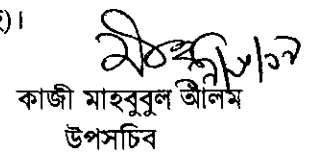 )।
কাজী মাহবুবুল আলম
উপসচিব